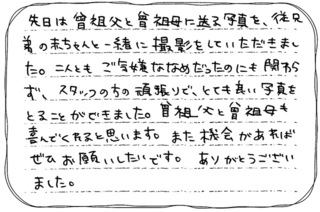 先日は曽祖父と曽祖母に送る写真を、従兄
弟の赤ちゃんと一緒に撮影をしていただきまし
た。二人とも ご気嫌ななめだったのにも関わら
ず、スタッフの方の頑張りで、とても良い写真を
とることができました。曽祖父と曽祖母も
喜んでくれると思います。また機会があれば
ぜひお願いしたいです。 ありがとうござい
ました。